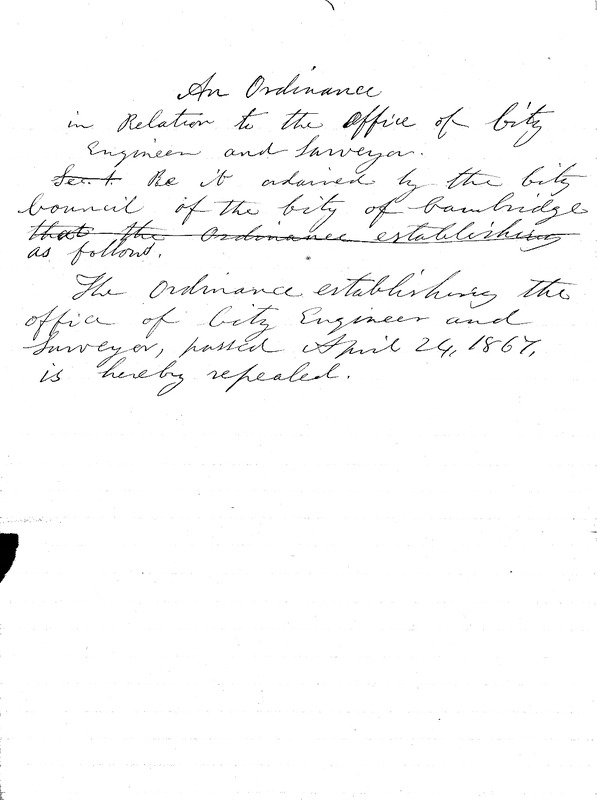 An Ordinance
in Relation to the Office of City
Engineer and Surveyor.
Sec. 1. Be it ordained by the City
Council of the City of Cambridge
that the Ordinance establishing
as follows.
The Ordinance establishing the
office of City Engineer and
Surveyor, passed April 24, 1867,
is hereby repealed.